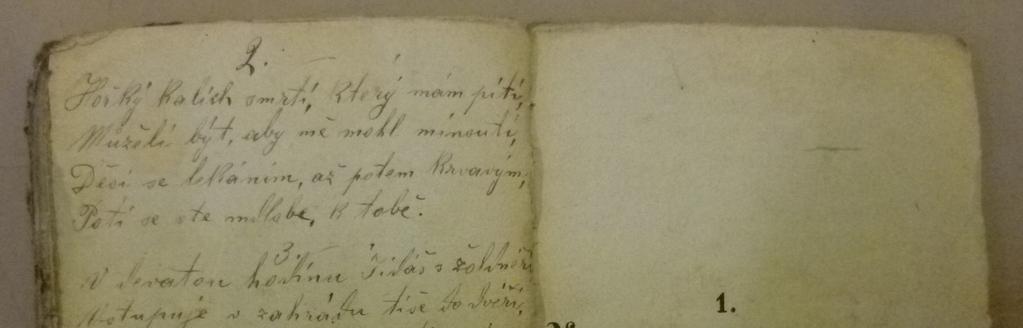 2.
Hořký kalich smrti, který mám píti,
Můželi být, aby mě mohl minouti,
Děsí se lekáním, až potem krvavým,
Potí se ve mdlobe, k tobě.
3.
V devatou hodinu Jidáš s žoldnéři
Vstupuje v zahrádu tiše do dvéří,
1.